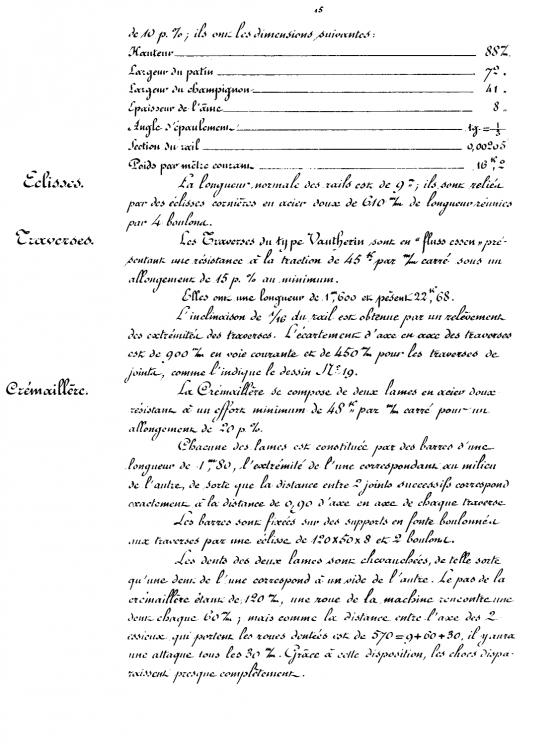 15
de 10 p. %; ils ont les dimensions suivantes:
Hauteur 88 m/m
Largeur du patin 72 "
Largeur du champignon 41 "
Epaisseur de l'âme 8 "
Angle d'épaulement tg = 1/3
Section du rail 0,00205
Poids par mètre courant 16 K,2
Eclisses.
La longueur normale des rails est de 9 m; ils sont reliés
par des éclisses cornières en acier doux de 610 m/m de longueur réunies
par 4 boulons.
Traverses.
Les Traverses du type Vautherin sont en "fluss essen" pré-
sentant une résistance à la traction de 45 K par m/m carré sous un
allongement de 15 p. % au minimum.
Elles ont une longueur de 1m,600 et pèsent 22K,68.
L'inclinaison de 1/16 du rail est obtenue par un relèvement
des extrémités des traverses. L'écartement d'axe en axe des traverses
est de 900 m/m en voie courante et de 450 m/m pour les traverses de
joints, comme l'indique le dessin No 19.
Crémaillère.
La Crémaillère se compose de deux lames en acier doux
résistant à un effort minimum de 48 K par m/m carré pour un
allongement de 20 p. %.
Chacune des lames est constituée par des barres d'une
longueur de 1m,80, l'extrémité de l'une correspondant au milieu
de l'autre, de sorte que la distance entre 2 joints successifs correspond
exactement à la distance de 0,90 d'axe en axe de chaque traverse
Les barres sont fixées sur des supports en fonte boulonnés
aux traverses par une éclisse de 120x50x8 et 2 boulons.
Les dents des deux lames sont chevauchées, de telle sorte
qu'une dent de l'une correspond à un vide de l'autre. Le pas de la
crémaillère étant de 120 m/m, une roue de la machine rencontre une
dent chaque 60 m/m; mais comme la distance entre l'axe des 2
essieux qui portent les roues dentées est de 570=9+60+30, il y aura
une attaque tous les 30 m/m. Grâce à cette disposition, les chocs dispa-
raissent presque complètement.